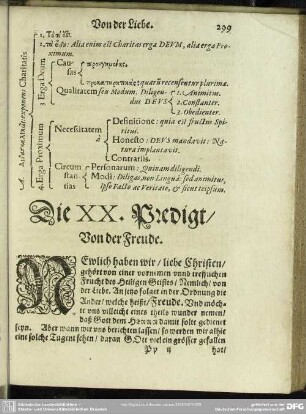 Von der Liebe.
299
1. Τὰ
2. Alia enim est Charitas erga DEVM, alia erga Proximum.
3. Erga Deum
Causas
quarũ recensentur plurimæ.
Qualitatem seu Modum. Diligendus DEVS
1. Animitus.
2. Constanter.
3. Obedienter.
4. Erga Proximum
Necessitatem à
Definitione: quia est fructus Spiritus.
Honesto: DEVS mandavit: Natura implantavit.
Contrariis.
Circumstantias
Personarum: Quinam diligendi.
Modi: Diligas non Linguâ sed animitus, ipso Facto ac Veritate, & sicut teipsum.
Die XX. Predigt/
Von der Freude.
NEwlich haben wir/ liebe Christen/
gehört von einer vornemen vnnd trefflichen
Frucht des Heiligen Geistes/ Nemlich/ von
der Liebe. An jetzo folget in der Ordnung die
Ander/ welche heißt/ Freude. Vnd möchte
vns villeicht eines theils wunder nemen/
daß Gott dem HErrn damit solte gedienet
seyn. Aber wann wir vns berichten lassen/ so werden wir allhie
eine solche Tugent sehen/ daran GOtt viel ein grösser gefallen
Pp ij
hat/